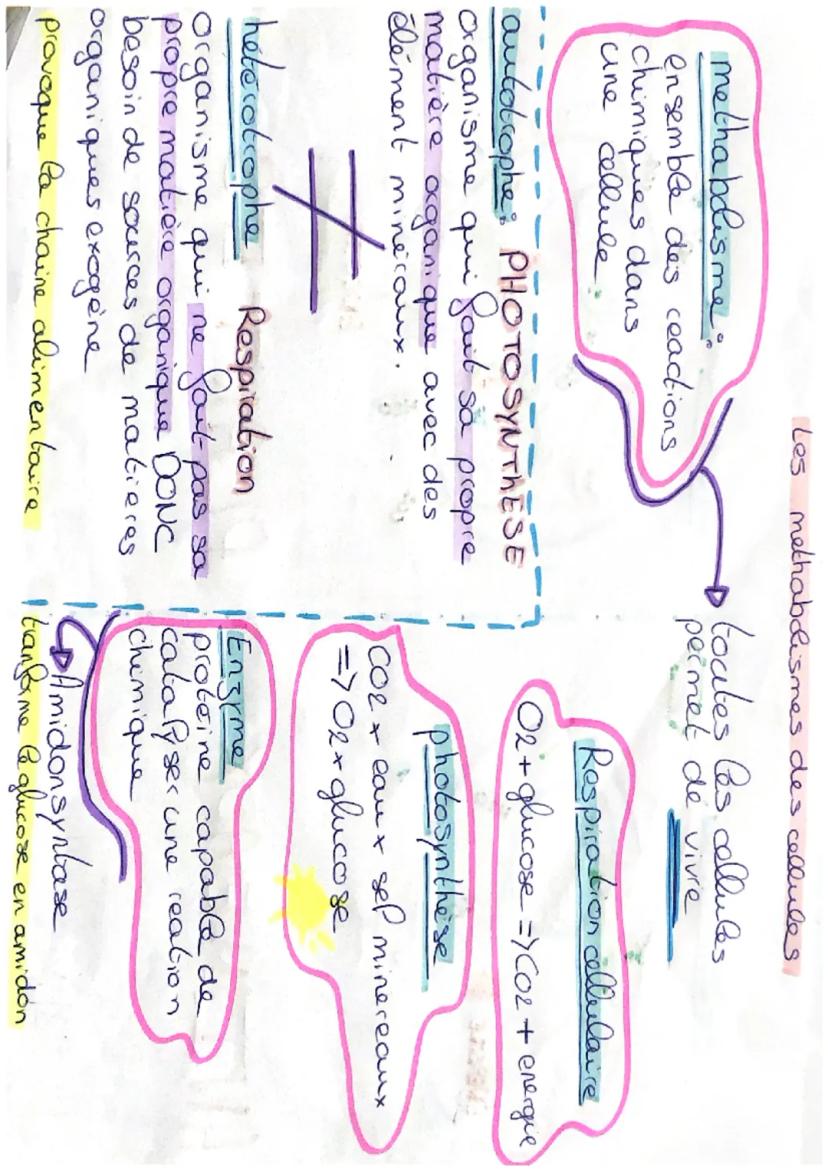 Les methabolismes des cellules
methabolisme :
ensemble des reactions
chimiques dans
une cellule
toutes les cellules
permet de vivre
autotrophe : PHOTOSYNTHESE
organisme qui fait sa propre
matière organique avec des
élément minéraux.
≠
hétérotrophe Respiration
organisme qui ne fait pas sa
propre matière organique DONC
besoin de sources de matieres
organiques exogène
provoque la chaine alimentaire
Respiration cellulaire
O2 + glucose => CO2 + energie
photosynthèse
CO2 x eau x sel minereaux
=> O2 x glucose
Enzyme
protéine capable de
catalyser une reation
chimique
Amidonsyntase
tranforme le glucose en amidon